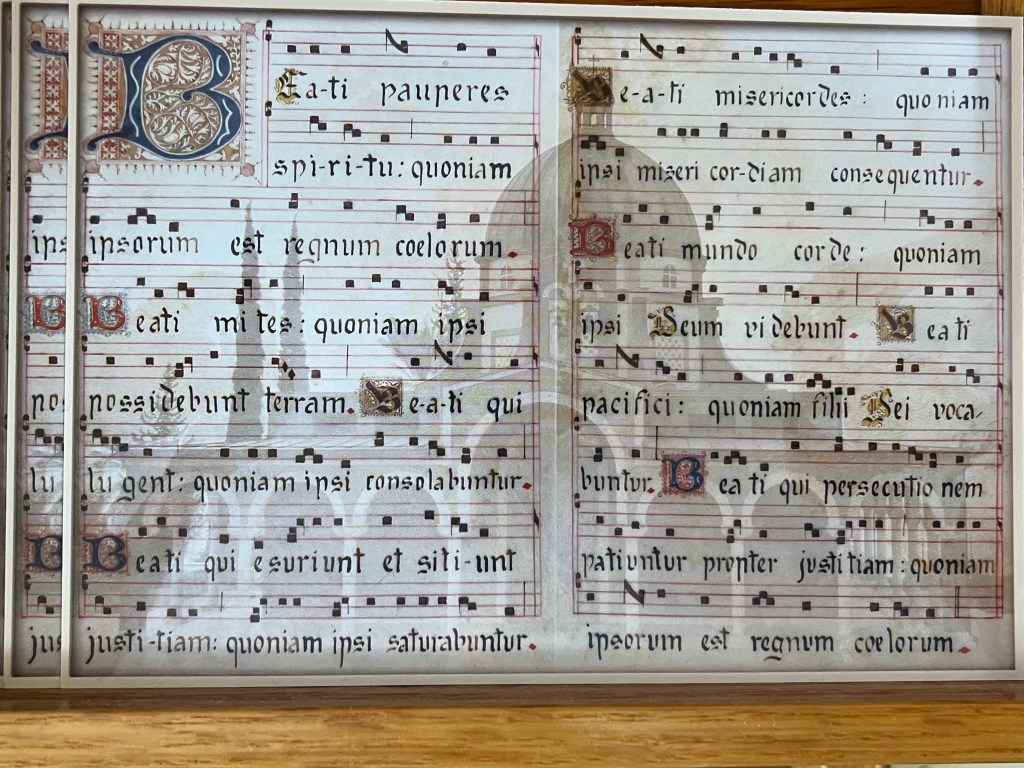 Beati pauperes
spi-ri-tu: quoniam
ipsorum est regnum coelorum.
Beati mites: quoniam ipsi
possidebunt terram. Be-a-ti qui
lugent: quoniam ipsi consolabuntur.
Beati qui esuriunt et siti-unt
justi-tiam: quoniam ipsi saturabuntur.
Be-a-ti misericordes: quoniam
ipsi misericor-diam consequentur.
Beati mundo corde: quoniam
ipsi Deum videbunt. Beati
pacifici: quoniam filii Dei voca-
buntur. Beati qui persecutionem
patiuntur propter justitiam: quoniam
ipsorum est regnum coelorum.